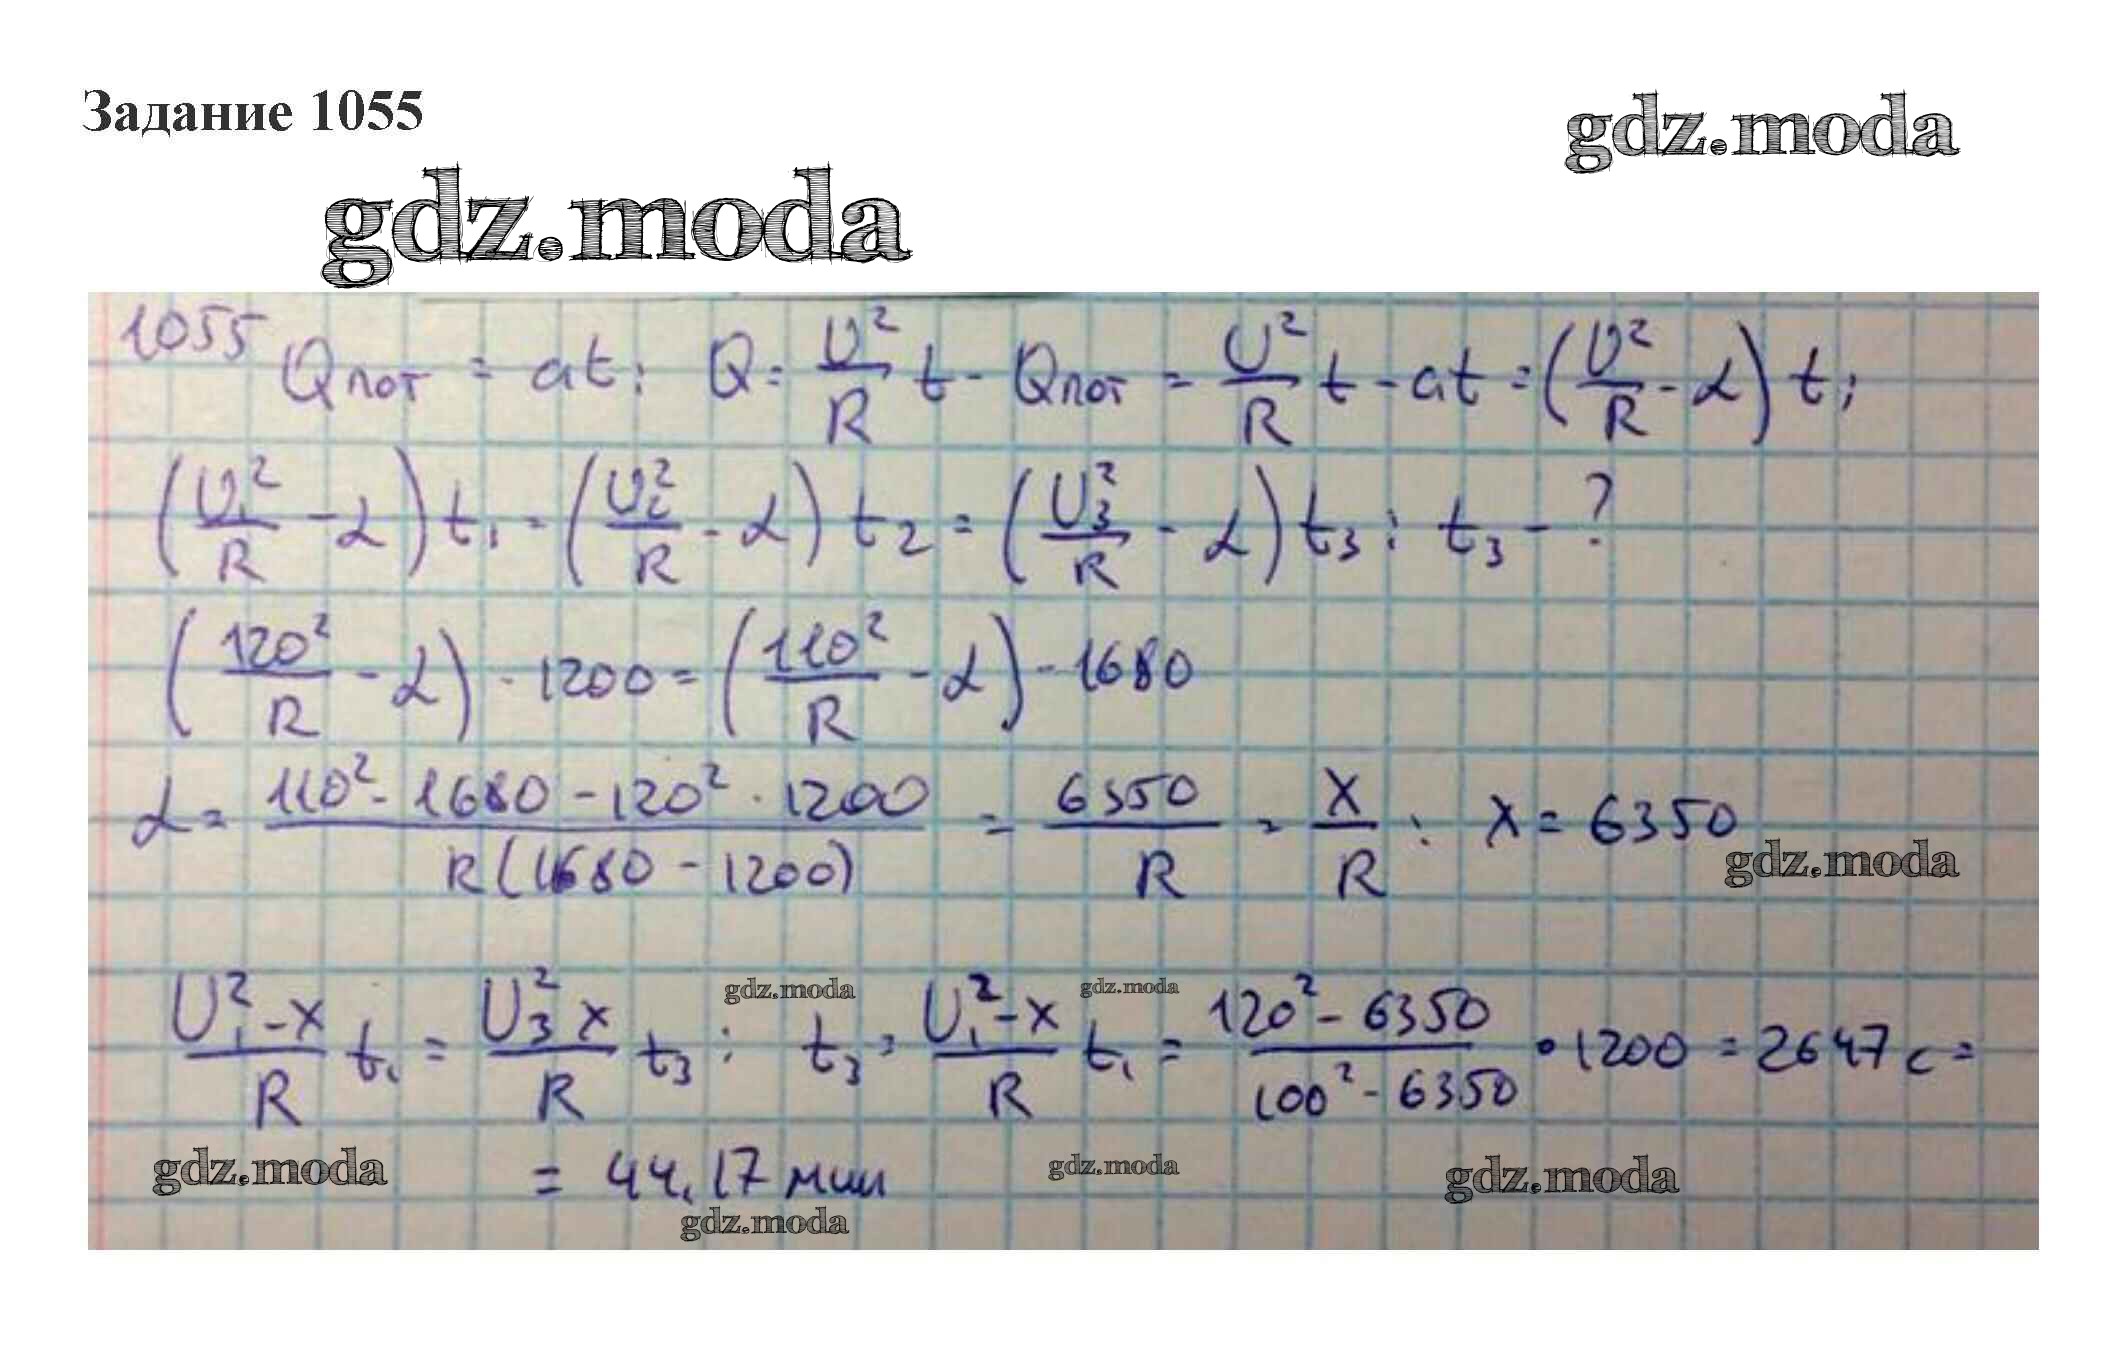 Задание 1055
gdz.moda
gdz.moda
1055 Qпот = at; Q = U²/R t - Qпот = U²/R t - at = (U²/R - α) t;
(U₁²/R - α) t₁ = (U₂²/R - α) t₂ = (U₃²/R - α) t₃; t₃ - ?
(120²/R - α) · 1200 = (110²/R - α) · 1680
α = 110² · 1680 - 120² · 1200 / R(1680 - 1200) = 6350/R = X/R; X = 6350
gdz.moda
gdz.moda
gdz.moda
U₁² - x/R t₁ = U₃² x/R t₃; t₃ = U₁² - x/R t₁ = 120² - 6350/100² - 6350 · 1200 = 2647 с =
= 44,17 мин
gdz.moda
gdz.moda
gdz.moda
gdz.moda